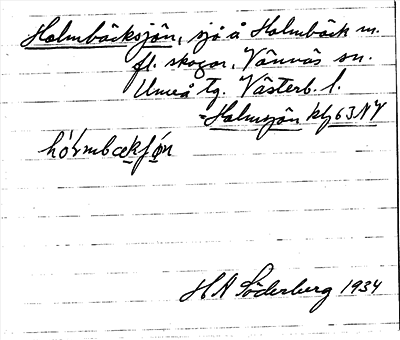 Holmbäcksjön, sjö å Holmbäck m.
fl. skogar, Vännäs sn.
Umeå tg. Västerb. l.
=Holmsjön kbl 63 NV
hó̀ɫmbækʃøn
H A Söderberg 1934